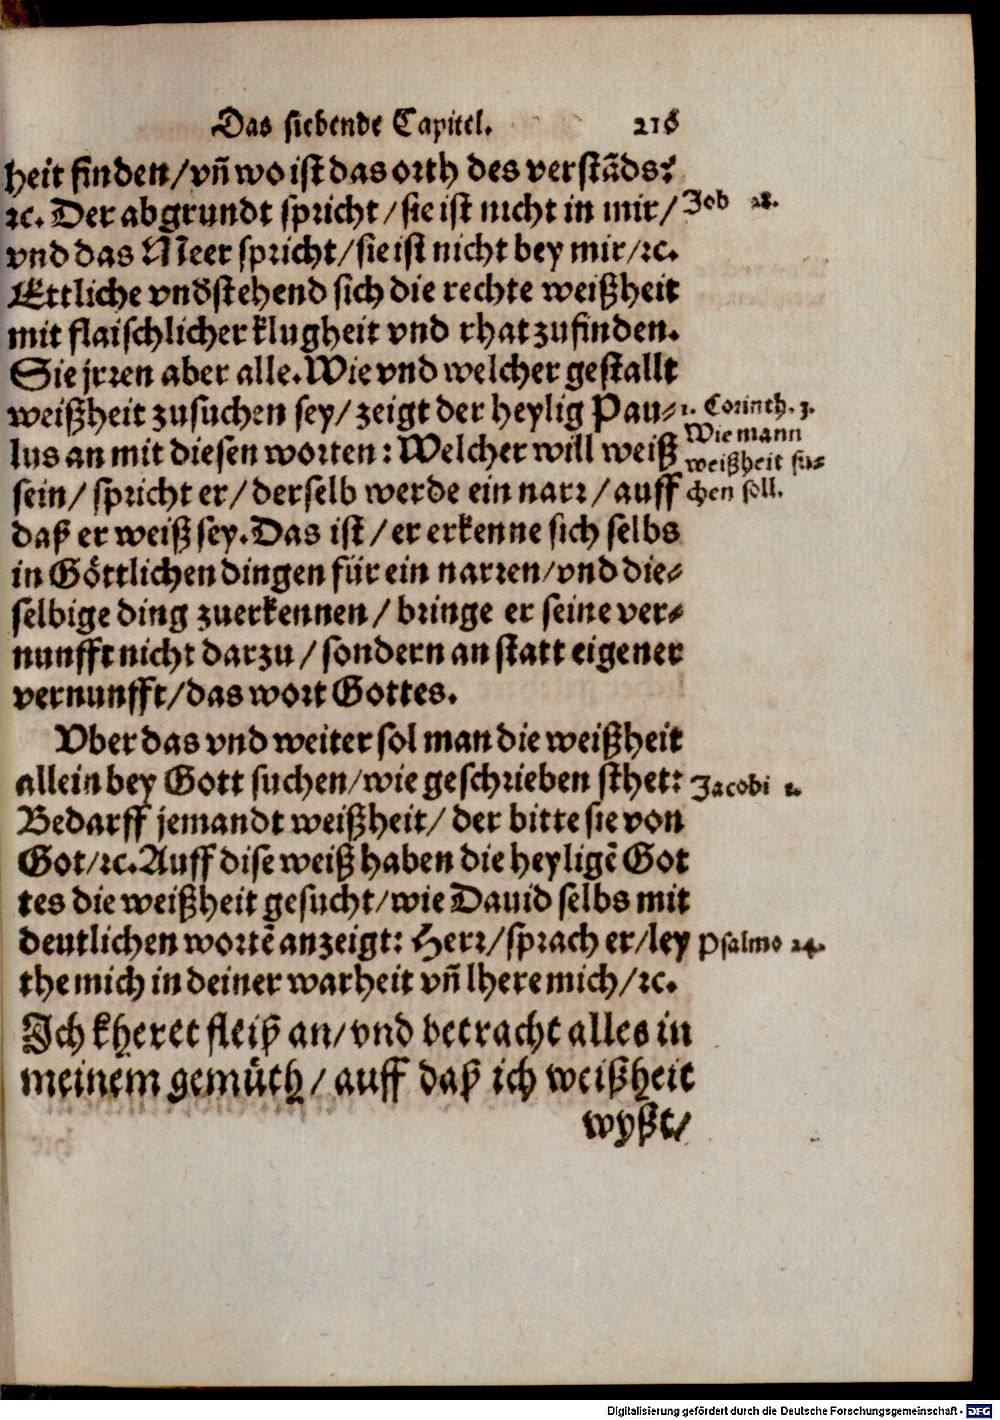 Das siebende Capitel. 216
heit finden/ vñ wo ist das orth des verstãds?
ꝛc. Der abgrundt spricht/ sie ist nicht in mir/
Job 28.
vnd das Meer spricht/ sie ist nicht bey mir/ ꝛc.
Ettliche vnd̕stehend sich die rechte weißheit
mit flaischlicher klugheit vnd rhat zufinden.
Sie jrren aber alle. Wie vnd welcher gestallt
weißheit zusuchen sey/ zeigt der heylig Pau⸗
1. Corinth. 3.
Wie mann
lus an mit diesen worten: Welcher will weiß
weißheit su⸗
sein/ spricht er/ derselb werde ein narr/ auff
chen soll.
daß er weiß sey. Das ist/ er erkenne sich selbs
in Göttlichen dingen für ein narren/ vnd die⸗
selbige ding zuerkennen/ bringe er seine ver⸗
nunfft nicht darzu/ sondern an statt eigener
vernunfft/ das wort Gottes.
Vber das vnd weiter sol man die weißheit
allein bey Gott suchen/ wie geschrieben sthet:
Jacobi 1.
Bedarff jemandt weißheit/ der bitte sie von
Got/ ꝛc. Auff dise weiß haben die heyligẽ Got
tes die weißheit gesucht/ wie Dauid selbs mit
deutlichen wortẽ anzeigt: Herr/ sprach er/ ley
Psalmo 24.
the mich in deiner warheit vñ lhere mich/ ꝛc.
Ich kheret fleiß an/ vnd betracht alles in
meinem gemüth/ auff daß ich weißheit
wyßt/
Digitalisierung gefördert durch die Deutsche Forschungsgemeinschaft - DFG